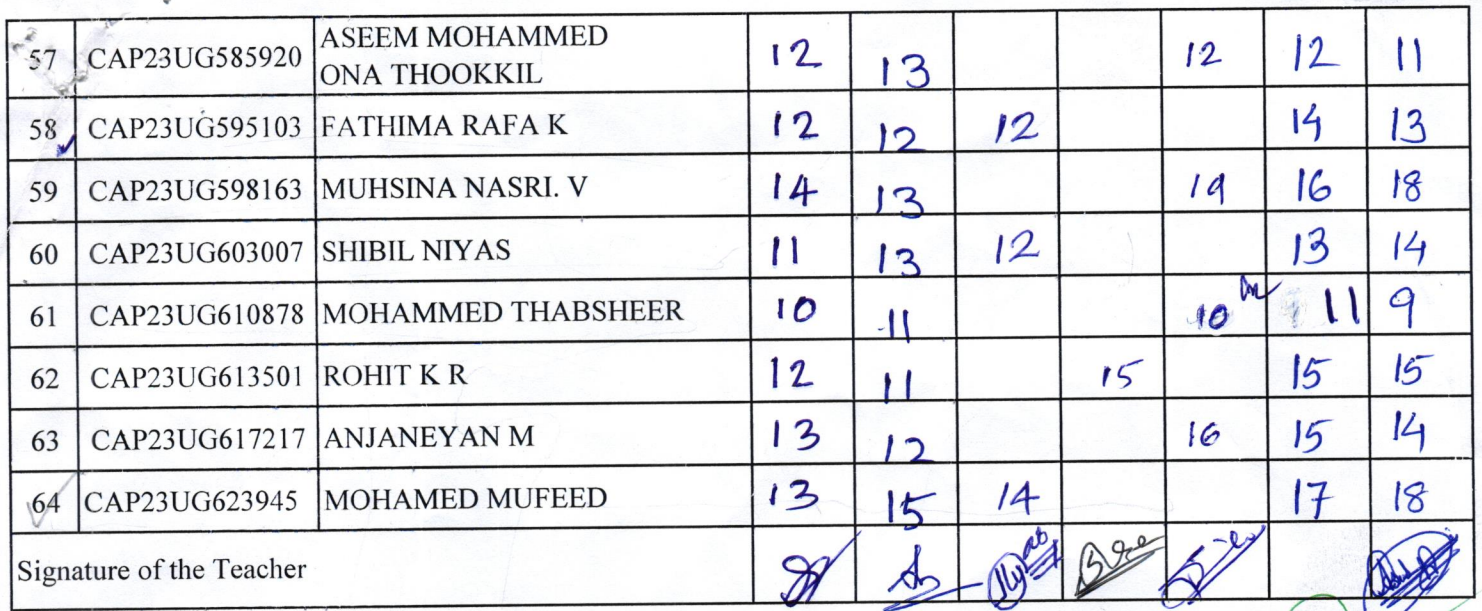 57 CAP23UG585920 ASEEM MOHAMMED
ONA THOOKKIL 12 13 12 12 11
58 CAP23UG595103 FATHIMA RAFA K 12 12 12 14 13
59 CAP23UG598163 MUHSINA NASRI. V 14 13 19 16 18
60 CAP23UG603007 SHIBIL NIYAS 11 13 12 13 14
61 CAP23UG610878 MOHAMMED THABSHEER 10 11 10 11 9
62 CAP23UG613501 ROHIT K R 12 11 15 15 15
63 CAP23UG617217 ANJANEYAN M 13 12 16 15 14
64 CAP23UG623945 MOHAMED MUFEED 13 15 14 17 18
Signature of the Teacher